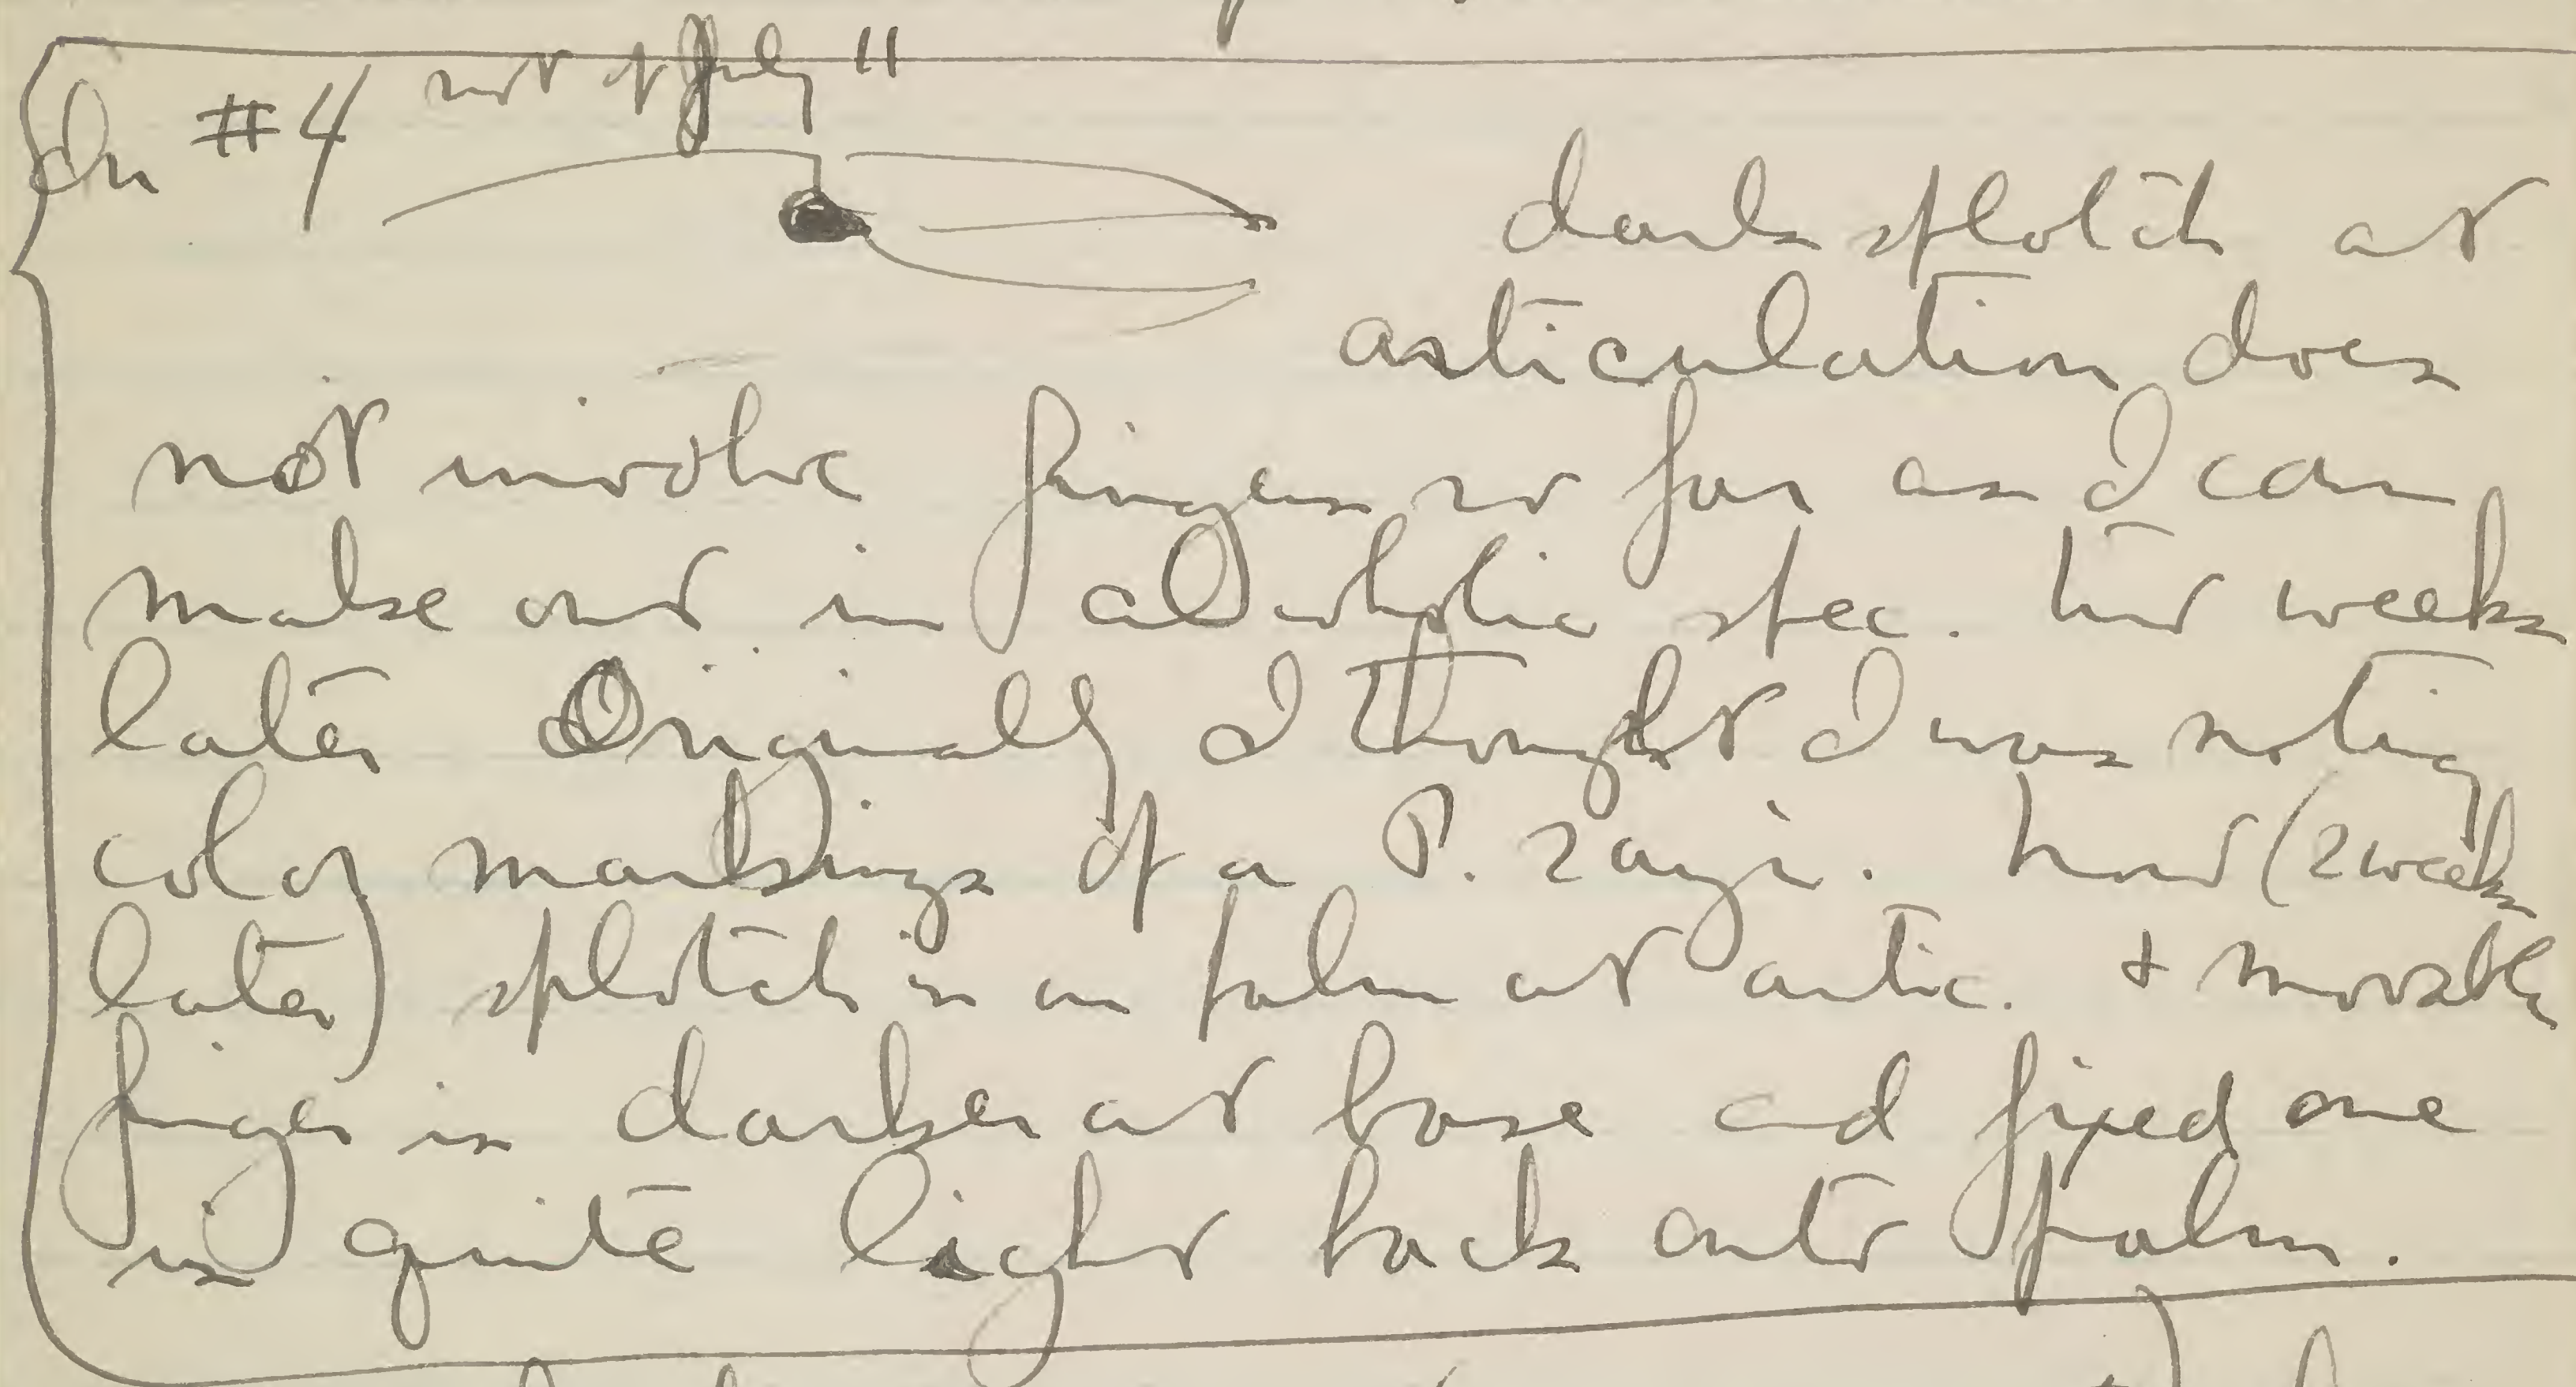 In #4 not of July 11
dark splotch at
articulation does
not involve fingers so far as I can
make out in alcoholic spec. two weeks
later Originally I thought I was noting
color markings of a P. rayi. now (2 weeks
later) splotch is on palm at artic. + movable
finger is darker at base and fixed one
is quite light back onto palm.